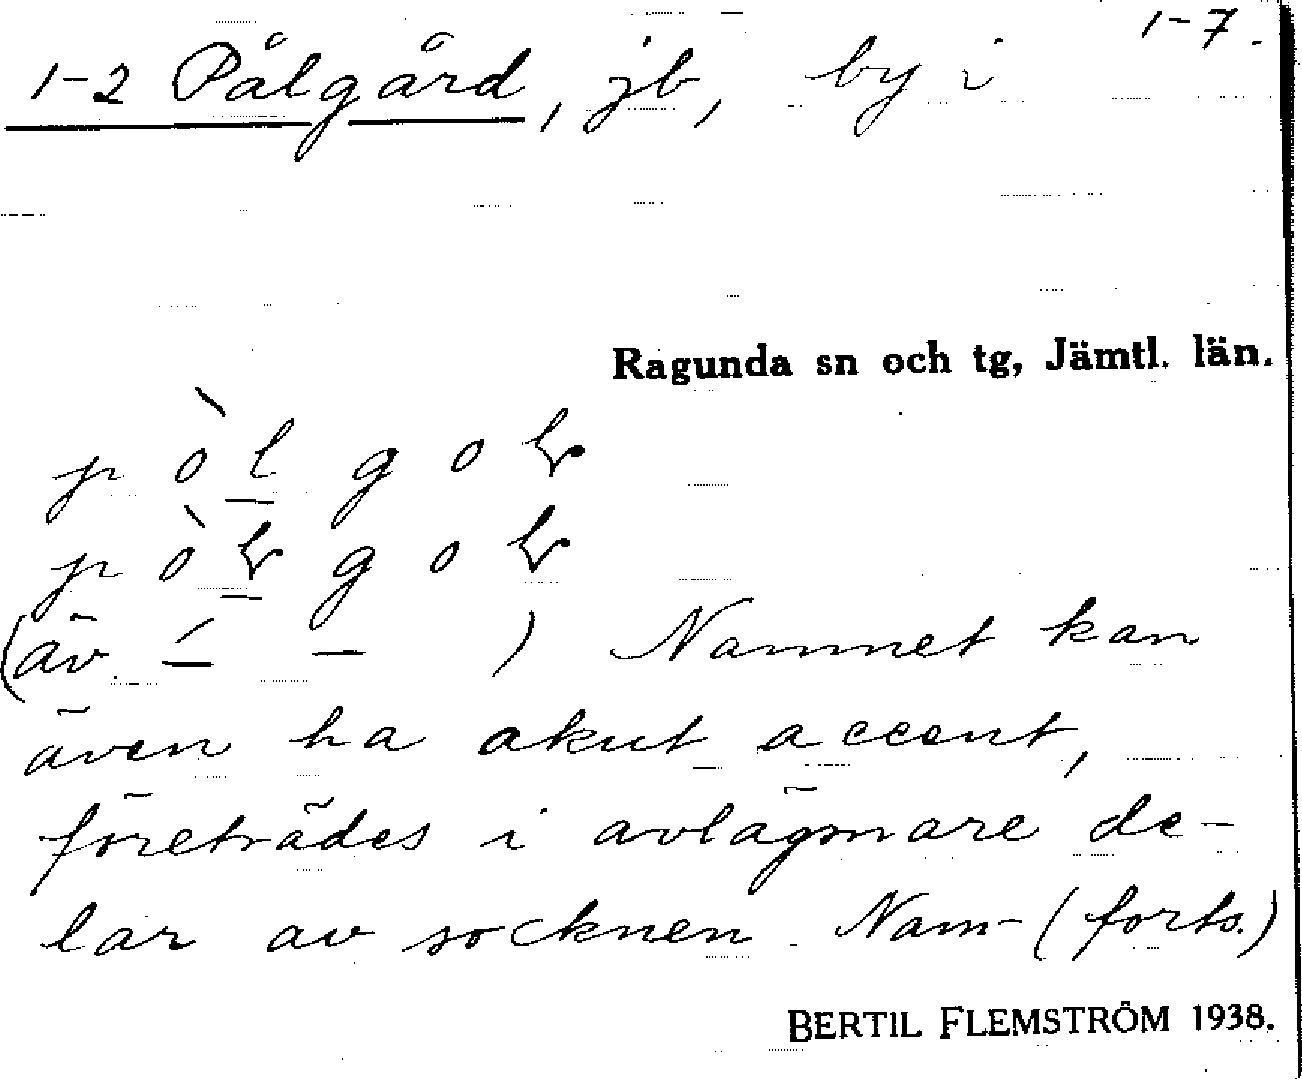 1-7.
1-2 Pålgård, jb, by i
Ragunda sn och tg, Jämtl. län.
p ò l g o
p ò g o
(äv. ´ – ) Namnet kan
även ha akut accent,
företrädes i avlägnare de-
lar av socknen. Nam- (forts.)
BERTIL FLEMSTRÖM 1938.